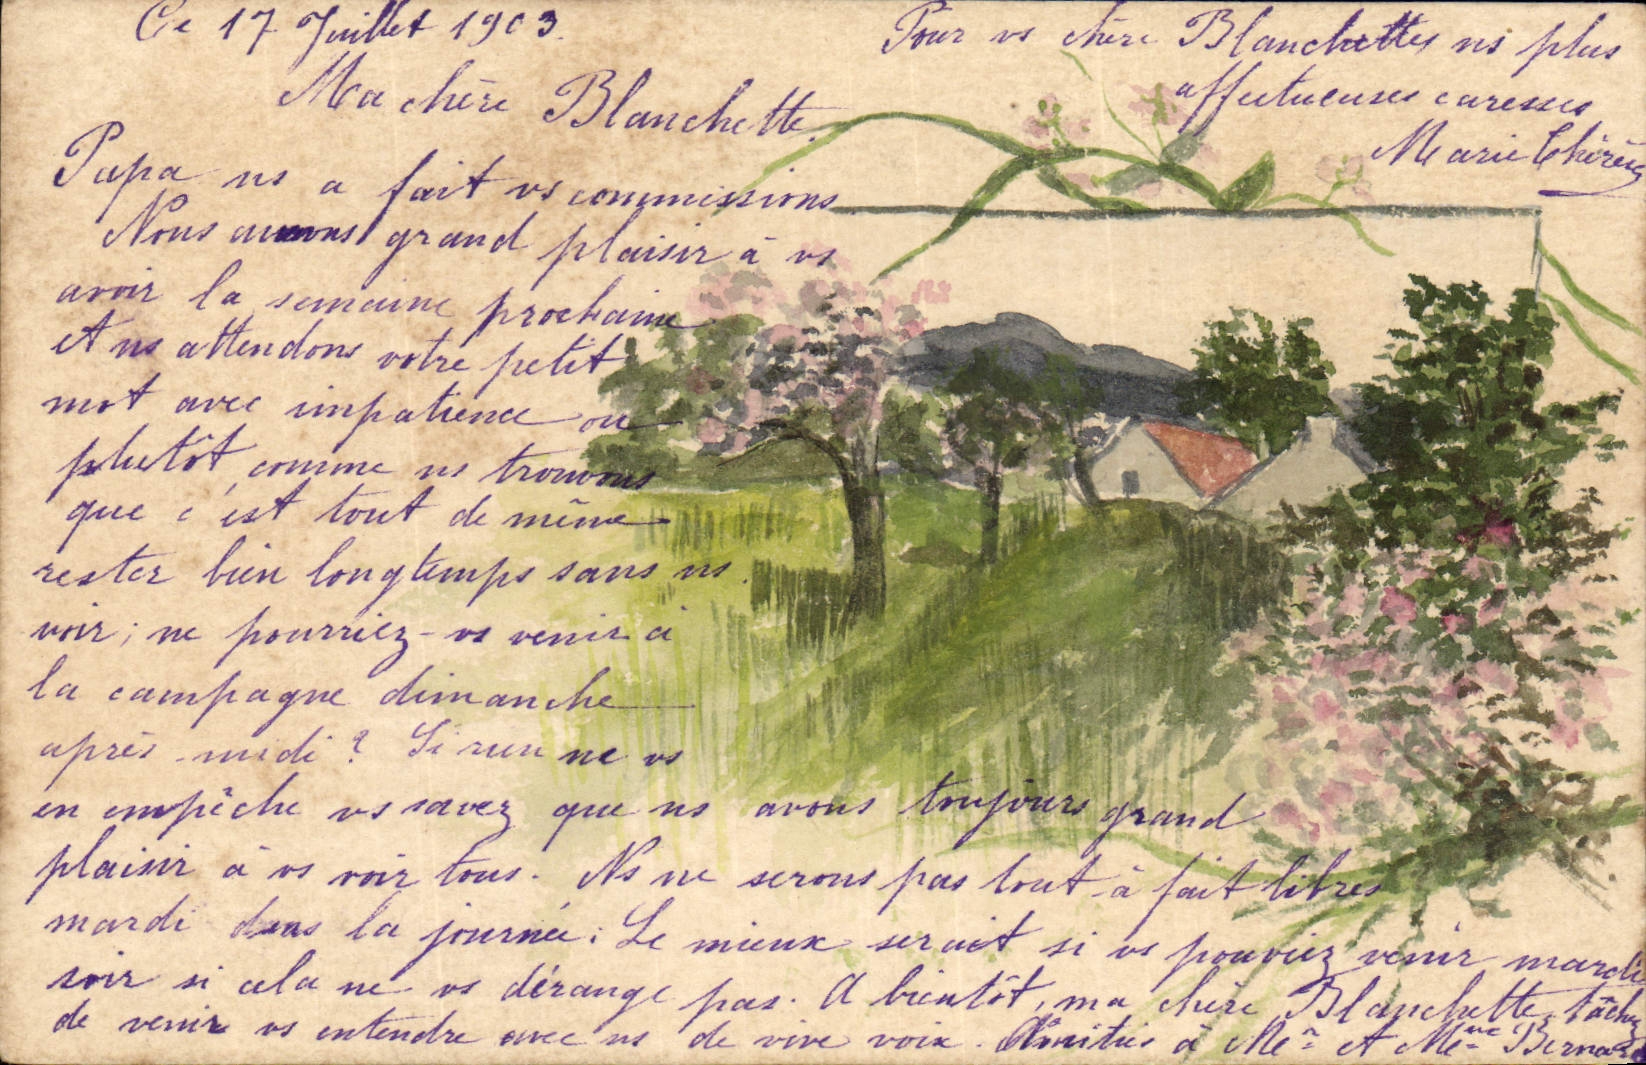 Ce 17 Juillet 1903.
Ma chère Blanchette,
Papa ns a fait vs commissions
Nous aurons grand plaisir à vs
avoir la semaine prochaine
et ns attendons votre petit
mot avec impatience ou
plutôt comme ns trouvons
que c'est tout de même
rester bien longtemps sans ns
voir; ne pourriez-vs venir à
la campagne dimanche
après-midi? Si rien ne vs
en empêche vs savez que ns avons toujours grand
plaisir à vs voir tous. Ns ne serons pas tout à fait libres
mardi dans la journée; Le mieux serait si vs pouviez venir mardi
soir si cela ne vs dérange pas. A bientôt, ma chère Blanchette, tâchez
de venir vs entendre avec ns de vive voix. Amitiés à Mr et Mme Bernard
Pour vs chère Blanchette ns plus
affectueuses caresses
Marie Thérèse